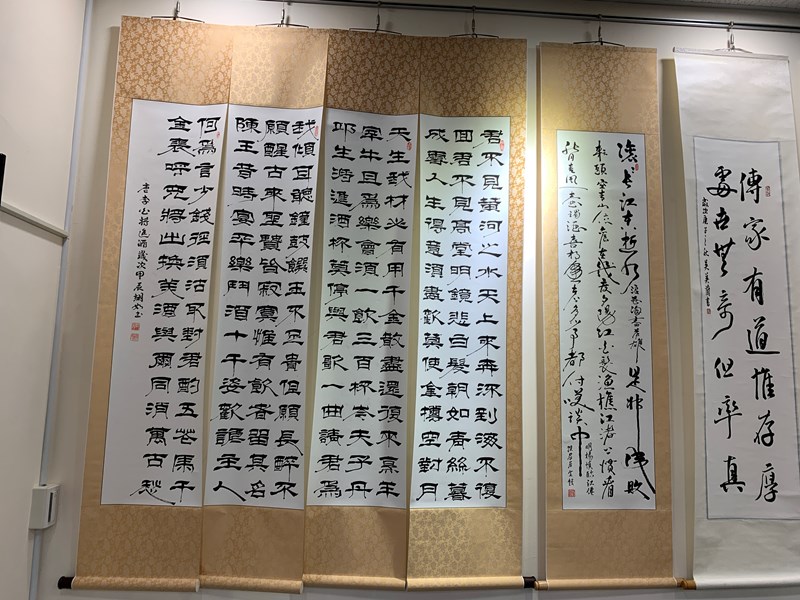 傳家有道惟存厚
處世無奇但率真
歲次庚子之秋吳美蘭書
滾滾長江東逝水浪花淘盡英雄是非成敗
轉頭空青山依舊在幾度夕陽紅白髮漁樵江渚上慣看
秋月春風一壺濁酒喜相逢古今多少事都付笑談中
明楊慎臨江仙
君不見黃河之水天上來奔流到海不復
回君不見高堂明鏡悲白髮朝如青絲暮
成雪人生得意須盡歡莫使金樽空對月
天生我材必有用千金散盡還復來烹羊
宰牛且為樂會須一飲三百杯岑夫子丹
邱生將進酒杯莫停與君歌一曲請君為
我傾耳聽鐘鼓饌玉不足貴但願長醉不
願醒古來聖賢皆寂寞惟有飲者留其名
陳王昔時宴平樂鬥酒十千恣歡謔主人
何為言少錢徑須沽取對君酌五花馬千
金裘呼兒將出換美酒與爾同消萬古愁
書李白將進酒歲次甲辰